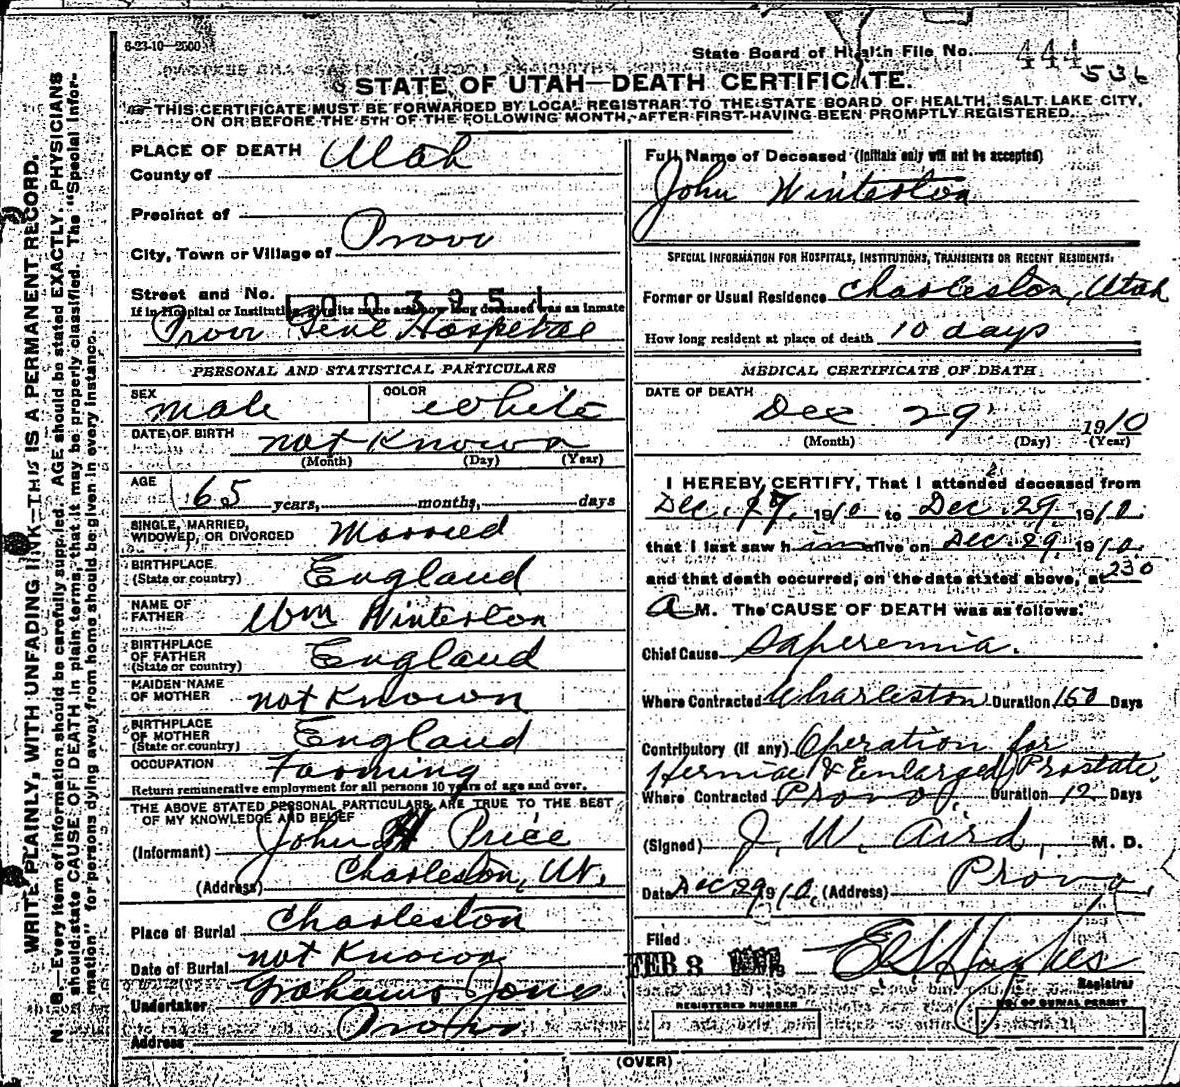 6-23-10—2500
State Board of Health File No. 444
536
STATE OF UTAH—DEATH CERTIFICATE.
THIS CERTIFICATE MUST BE FORWARDED BY LOCAL REGISTRAR TO THE STATE BOARD OF HEALTH, SALT LAKE CITY,
ON OR BEFORE THE 5TH OF THE FOLLOWING MONTH, AFTER FIRST HAVING BEEN PROMPTLY REGISTERED.
WRITE PLAINLY, WITH UNFADING INK—THIS IS A PERMANENT RECORD.
N. B.—Every item of information should be carefully supplied. AGE should be stated EXACTLY. PHYSICIANS
should state CAUSE OF DEATH in plain terms, that it may be properly classified. The "Special Infor-
mation" for persons dying away from home should be given in every instance.
PLACE OF DEATH
County of Utah
Precinct of
City, Town or Village of Provo
Street and No.
If in Hospital or Institution, give its name and how long deceased was as inmate
Provo Genl Hospetal
PERSONAL AND STATISTICAL PARTICULARS
SEX male COLOR White
DATE OF BIRTH not Known
(Month) (Day) (Year)
AGE 65 years, months, days
SINGLE, MARRIED,
WIDOWED, OR DIVORCED Married
BIRTHPLACE
(State or country) England
NAME OF
FATHER Wm Winterton
BIRTHPLACE
OF FATHER
(State or country) England
MAIDEN NAME
OF MOTHER not Known
BIRTHPLACE
OF MOTHER
(State or country) England
OCCUPATION Farming
Return remunerative employment for all persons 10 years of age and over.
THE ABOVE STATED PERSONAL PARTICULARS ARE TRUE TO THE BEST
OF MY KNOWLEDGE AND BELIEF
(Informant) John H Price
(Address) Charleston, Ut.
Place of Burial Charleston
Date of Burial not Known
Undertaker Grahams Jones
Address Provo
Full Name of Deceased (Initials only will not be accepted)
John Winterton
SPECIAL INFORMATION FOR HOSPITALS, INSTITUTIONS, TRANSIENTS OR RECENT RESIDENTS.
Former or Usual Residence Charleston, Utah
How long resident at place of death 10 days
MEDICAL CERTIFICATE OF DEATH
DATE OF DEATH
Dec. 29 1910
(Month) (Day) (Year)
I HEREBY CERTIFY, That I attended deceased from
Dec. 17, 1910 to Dec. 29 1910.
that I last saw him alive on Dec. 29 1910.
and that death occurred, on the date stated above, at 230
A M. The CAUSE OF DEATH was as follows:
Chief Cause Saperemia.
Where Contracted Charleston Duration 150 Days
Contributory (if any) Operation for
Herniae & Enlarged Prostate.
Where Contracted Provo, Duration 12 Days
(Signed) J. W. Aird, M. D.
Date Dec 29 1910, (Address) Provo,
Filed
FEB 3
Registrar
REGISTERED NUMBER
NO. OF BURIAL PERMIT
(OVER)